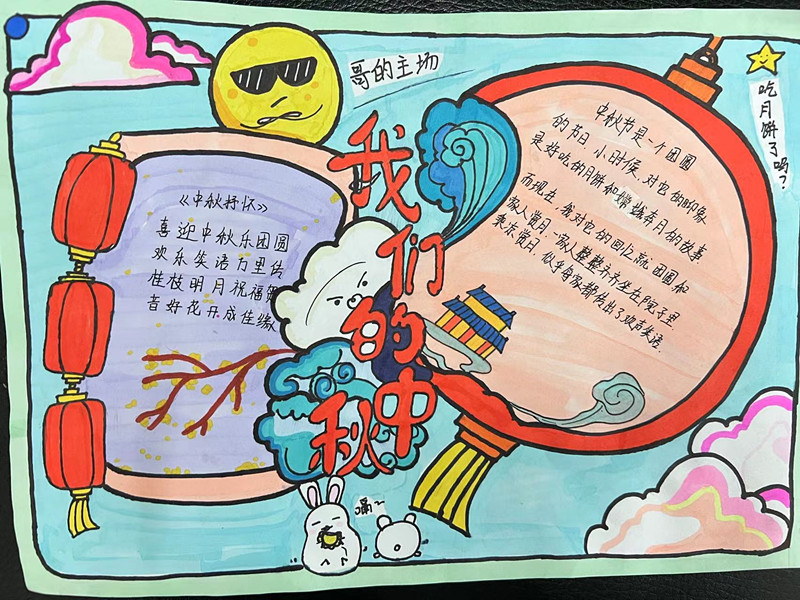 哥的主场
吃月饼了哟?
我们的中秋
《中秋抒怀》
喜迎中秋乐团圆
欢乐笑语万里传
桂枝明月祝福贺
音好花开成佳缘
中秋节是一个团圆
的节日,小时候,对它的印象
是好吃的月饼和嫦娥奔月的故事
而现在,我对它的回忆就是团圆和
家人赏月,一家人整整齐齐坐在院子里,
来赏月,似乎每家都传出了欢声笑语.
嗝~